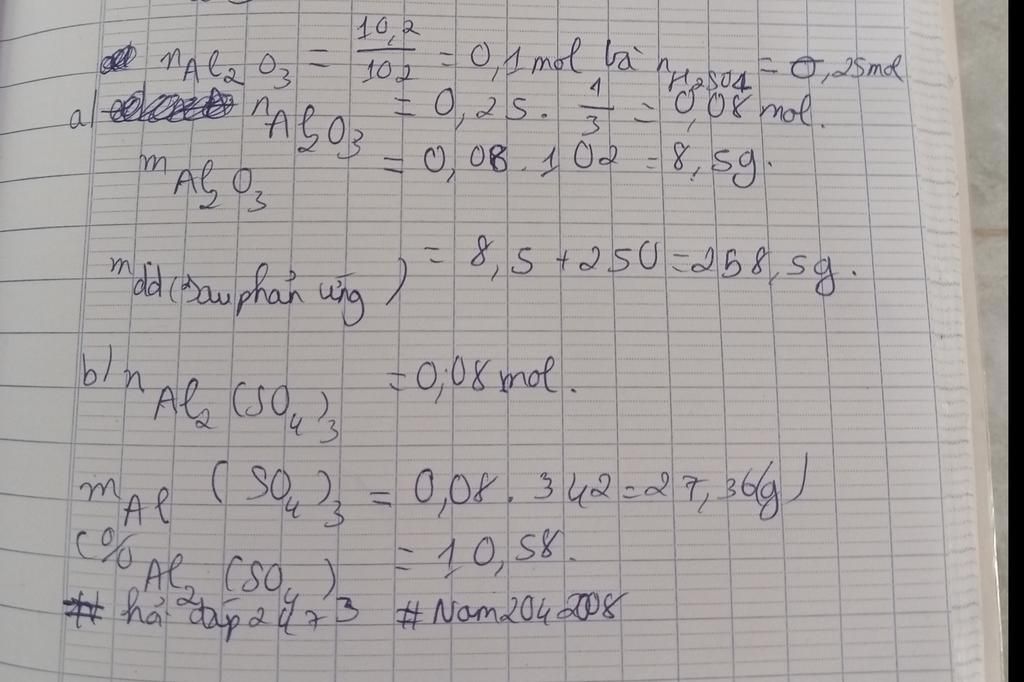 nAl2O3 = 10,2/102 = 0,1mol và nH2SO4 = 0,25mol
a) nAl2O3 = 0,25 . 1/3 = 0,08 mol.
mAl2O3 = 0,08 . 102 = 8,5g.
mdd (sau phản ứng) = 8,5 + 250 = 258,5g.
b) nAl2(SO4)3 = 0,08 mol.
mAl(SO4)3 = 0,08 . 342 = 27,36(g)
C% Al2(SO4) = 10,58.
# hỏi đáp 247 3 #Nam2042008